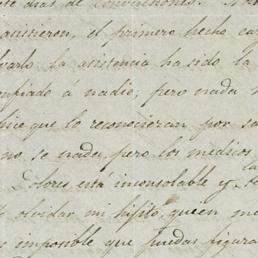 dias de convulsiones.
asistieron, el primero hecho
la asistencia ha sido la
á nadie, pero nada
hice que lo reconocieran por
no se nada, pero los medios
Dolores está inconsolable y
la
olvidar mi hijito, quien me
es imposible que puedas figura